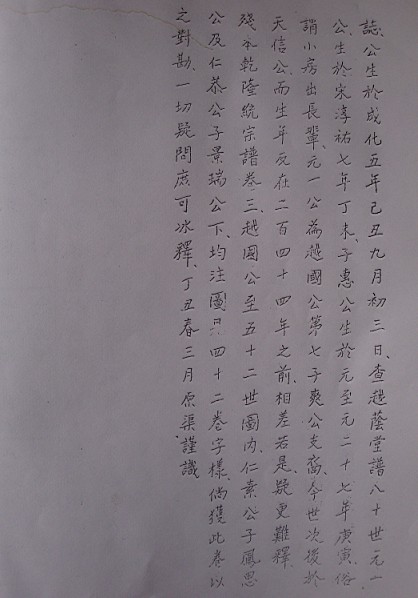 誌公生於成化五年己丑九月初三日、查越蔭堂譜八十世元一
公生於宋淳祐七年丁未、子惠公生於元至元二十七年庚寅俗
謂小房出長輩、元一公為越國公第七子爽公支裔、奉世次後於
天信公、而生年反在二百四十四年之前、相差若是、疑更難釋、
殘本乾隆統宗譜卷三、越國公至五十二世圖內、仁素公子鳳思
公及仁恭公子景瑞公下、均注圖見四十二卷字樣、倘獲此卷以
之對勘、一切疑問庶可冰釋、丁丑春三月原渠謹識